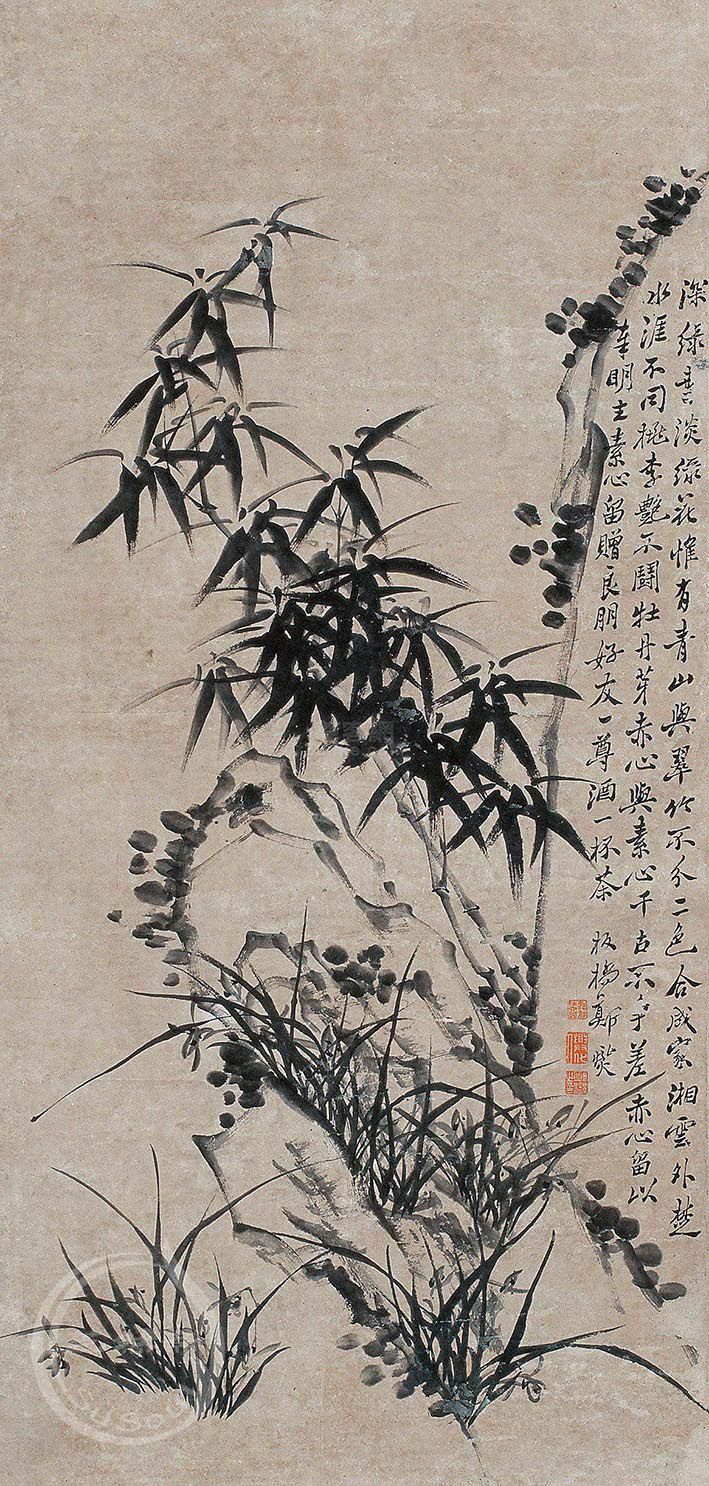 深緑叶淡緑花惟有青山與翠竹不分二色合成家湘雲外楚
水涯不同桃李艷不鬭牡丹芽赤心與素心千古不爭差赤心留以
奉明主素心留贈良朋好友一尊酒一杯茶
板橋鄭燮